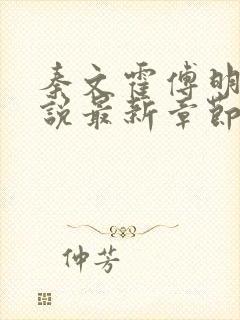 秦文霍傅明
說最新章節
仲芳